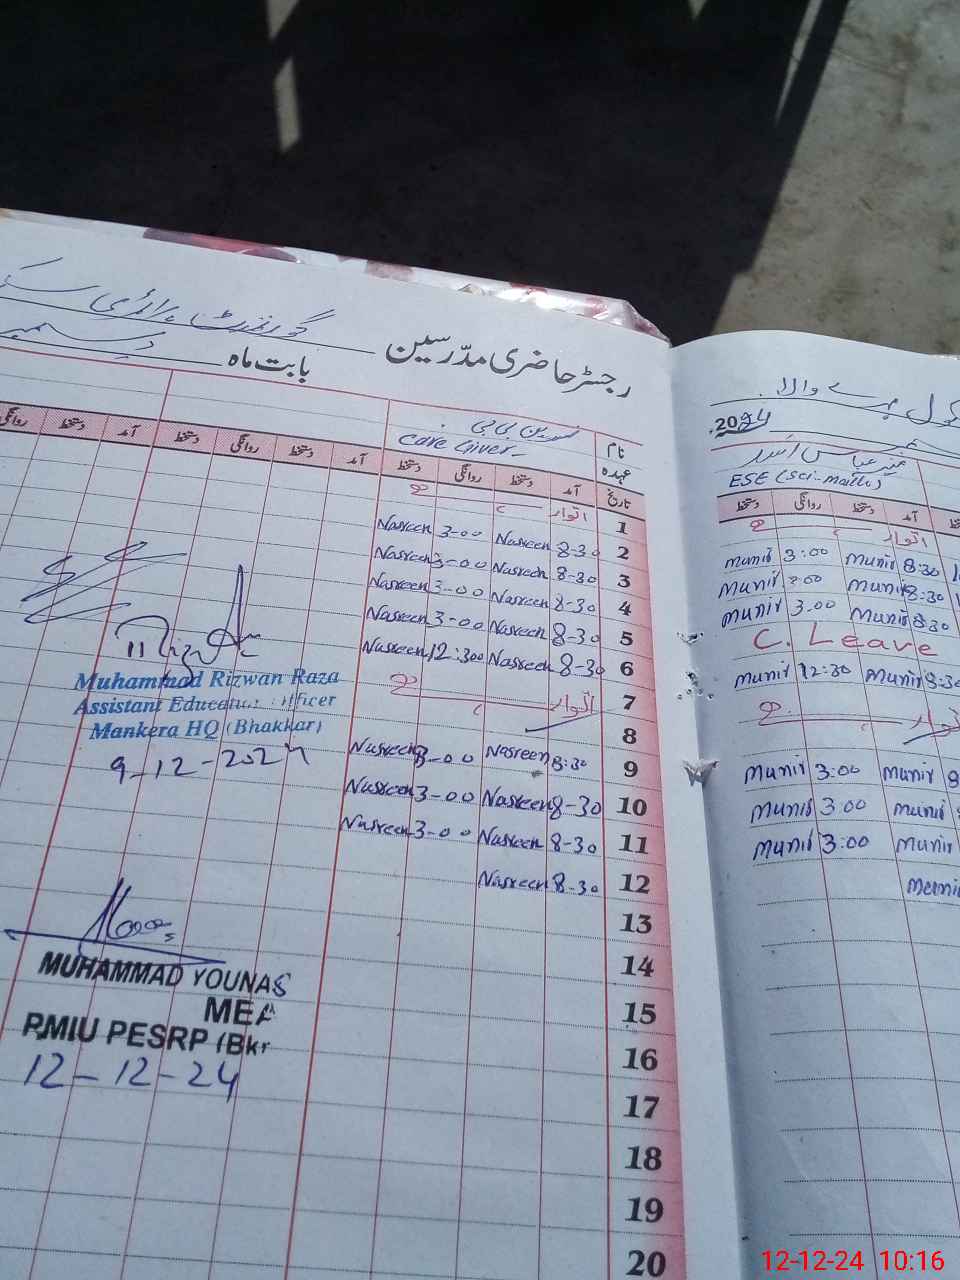 گورنمنٹ پرائمری سکول
رجسٹر حاضری مدرسین
بابت ماہ دسمبر
2024
نام نسرین بی بی
عہدہ Care Giver
تاریخ آمد دستخط روانگی دستخط آمد دستخط روانگی دستخط آمد دستخط روانگی
1 اتوار
2 8-30 Nasreen 3-00 Nasreen
3 8-30 Nasreen 3-00 Nasreen
4 8-30 Nasreen 3-00 Nasreen
5 8-30 Nasreen 3-00 Nasreen
6 8-30 Nasreen 12:300 Nasreen
7
8 اتوار
9 8:30 Nasreen 3-00 Nasreen
10 8-30 Nasreen 3-00 Nasreen
11 8-30 Nasreen 3-00 Nasreen
12 8-30 Nasreen
13
14
15
16
17
18
19
20
Muhammad Rizwan Raza
Assistant Education Officer
Mankera HQ (Bhakkar)
9-12-2024
MUHAMMAD YOUNAS
MEA
PMIU PESRP (Bkr
12-12-24
ESE (Sci-math)
آمد دستخط روانگی دستخط
اتوار
8:30 Munir 3:00 Munir
8:30 Munir 3:00 Munir
8:30 Munir 3.00 Munir
C. Leave
8:30 Munir 12:30 Munir
اتوار
Munir 3:00 Munir
Munir 3:00 Munir
Munir 3:00 Munir
12-12-24 10:16